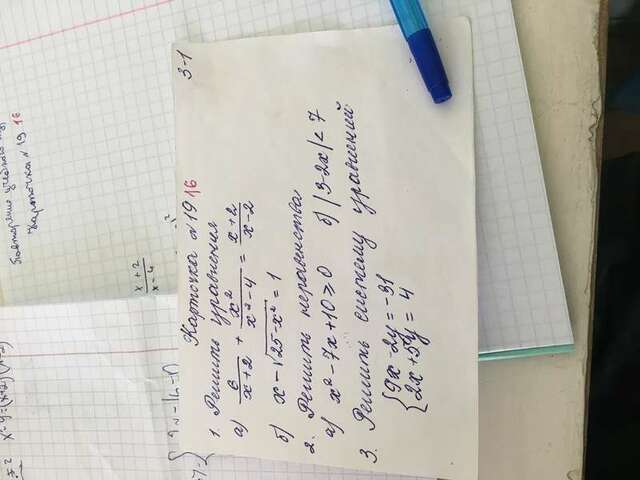 x²-4=(x+2)(x-2)
Повторение
Карточка №19 16
x+2
x-4
Карточка №19 16 3-1
1. Решить уравнения
а) 6/(x+2) + x²/(x²-4) = (x+2)/(x-2)
б) x - √(25-x²) = 1
2. Решить неравенства
а) x² - 7x + 10 ≥ 0 б) |3-2x| < 7
3. Решить систему уравнений
{9x - 2y = -31
{2x + 5y = 4